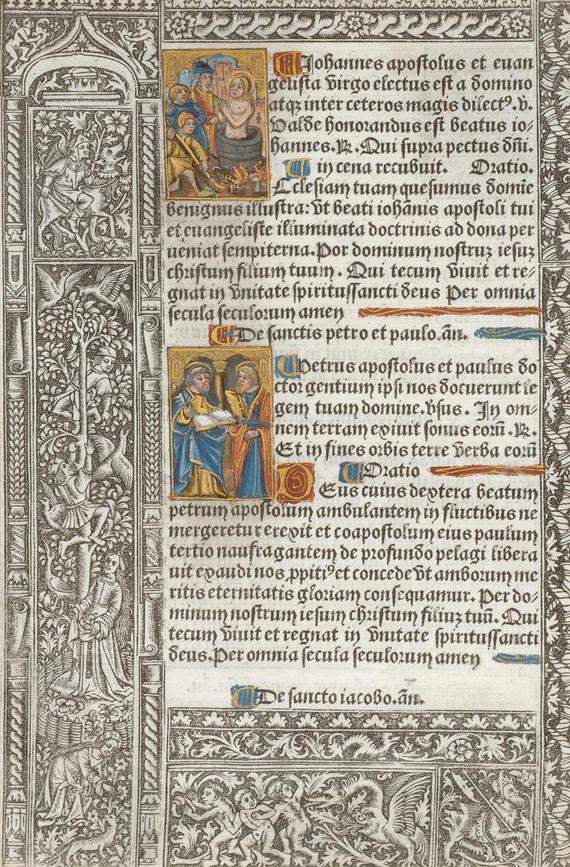 Iohannes apostolus et euan
gelista virgo electus est a domino
atqȝ inter ceteros magis dilectꝰ. v.
Valde honorandus est beatus io-
hannes. ℟. Qui supra pectus dñi.
in cena recubuit. Oratio.
Ecclesiam tuam quesumus domie
benignus illustra: vt beati iohãnis apostoli tui
et euangeliste illuminata doctrinis ad dona per
ueniat sempiterna. Por dominum nostruȝ iesuȝ
christum filium tuum. Qui tecum viuit et re-
gnat in vnitate spiritussancti deus Per omnia
secula seculorum amen
De sanctis petro et paulo. añ.
Petrus apostolus et paulus do
ctor gentium ipsi nos docuerunt le
gem tuam domine. vsus. In om-
nem terram exiuit sonus eorũ. ℟.
Et in fines orbis terre verba eorũ
Oratio
Deus cuius dextera beatum
petrum apostolum ambulantem in fluctibus ne
mergeretur erexit et coapostolum eius paulum
tertio naufragantem de profundo pelagi libera
uit exaudi nos ꝓpitiꝰ et concede vt amborum me
ritis eternitatis gloriam consequamur. Per do-
minum nostrum iesum christum filiuȝ tuũ. Qui
tecum viuit et regnat in vnitate spiritussancti
deus. Per omnia secula seculorum amen
De sancto iacobo. añ.